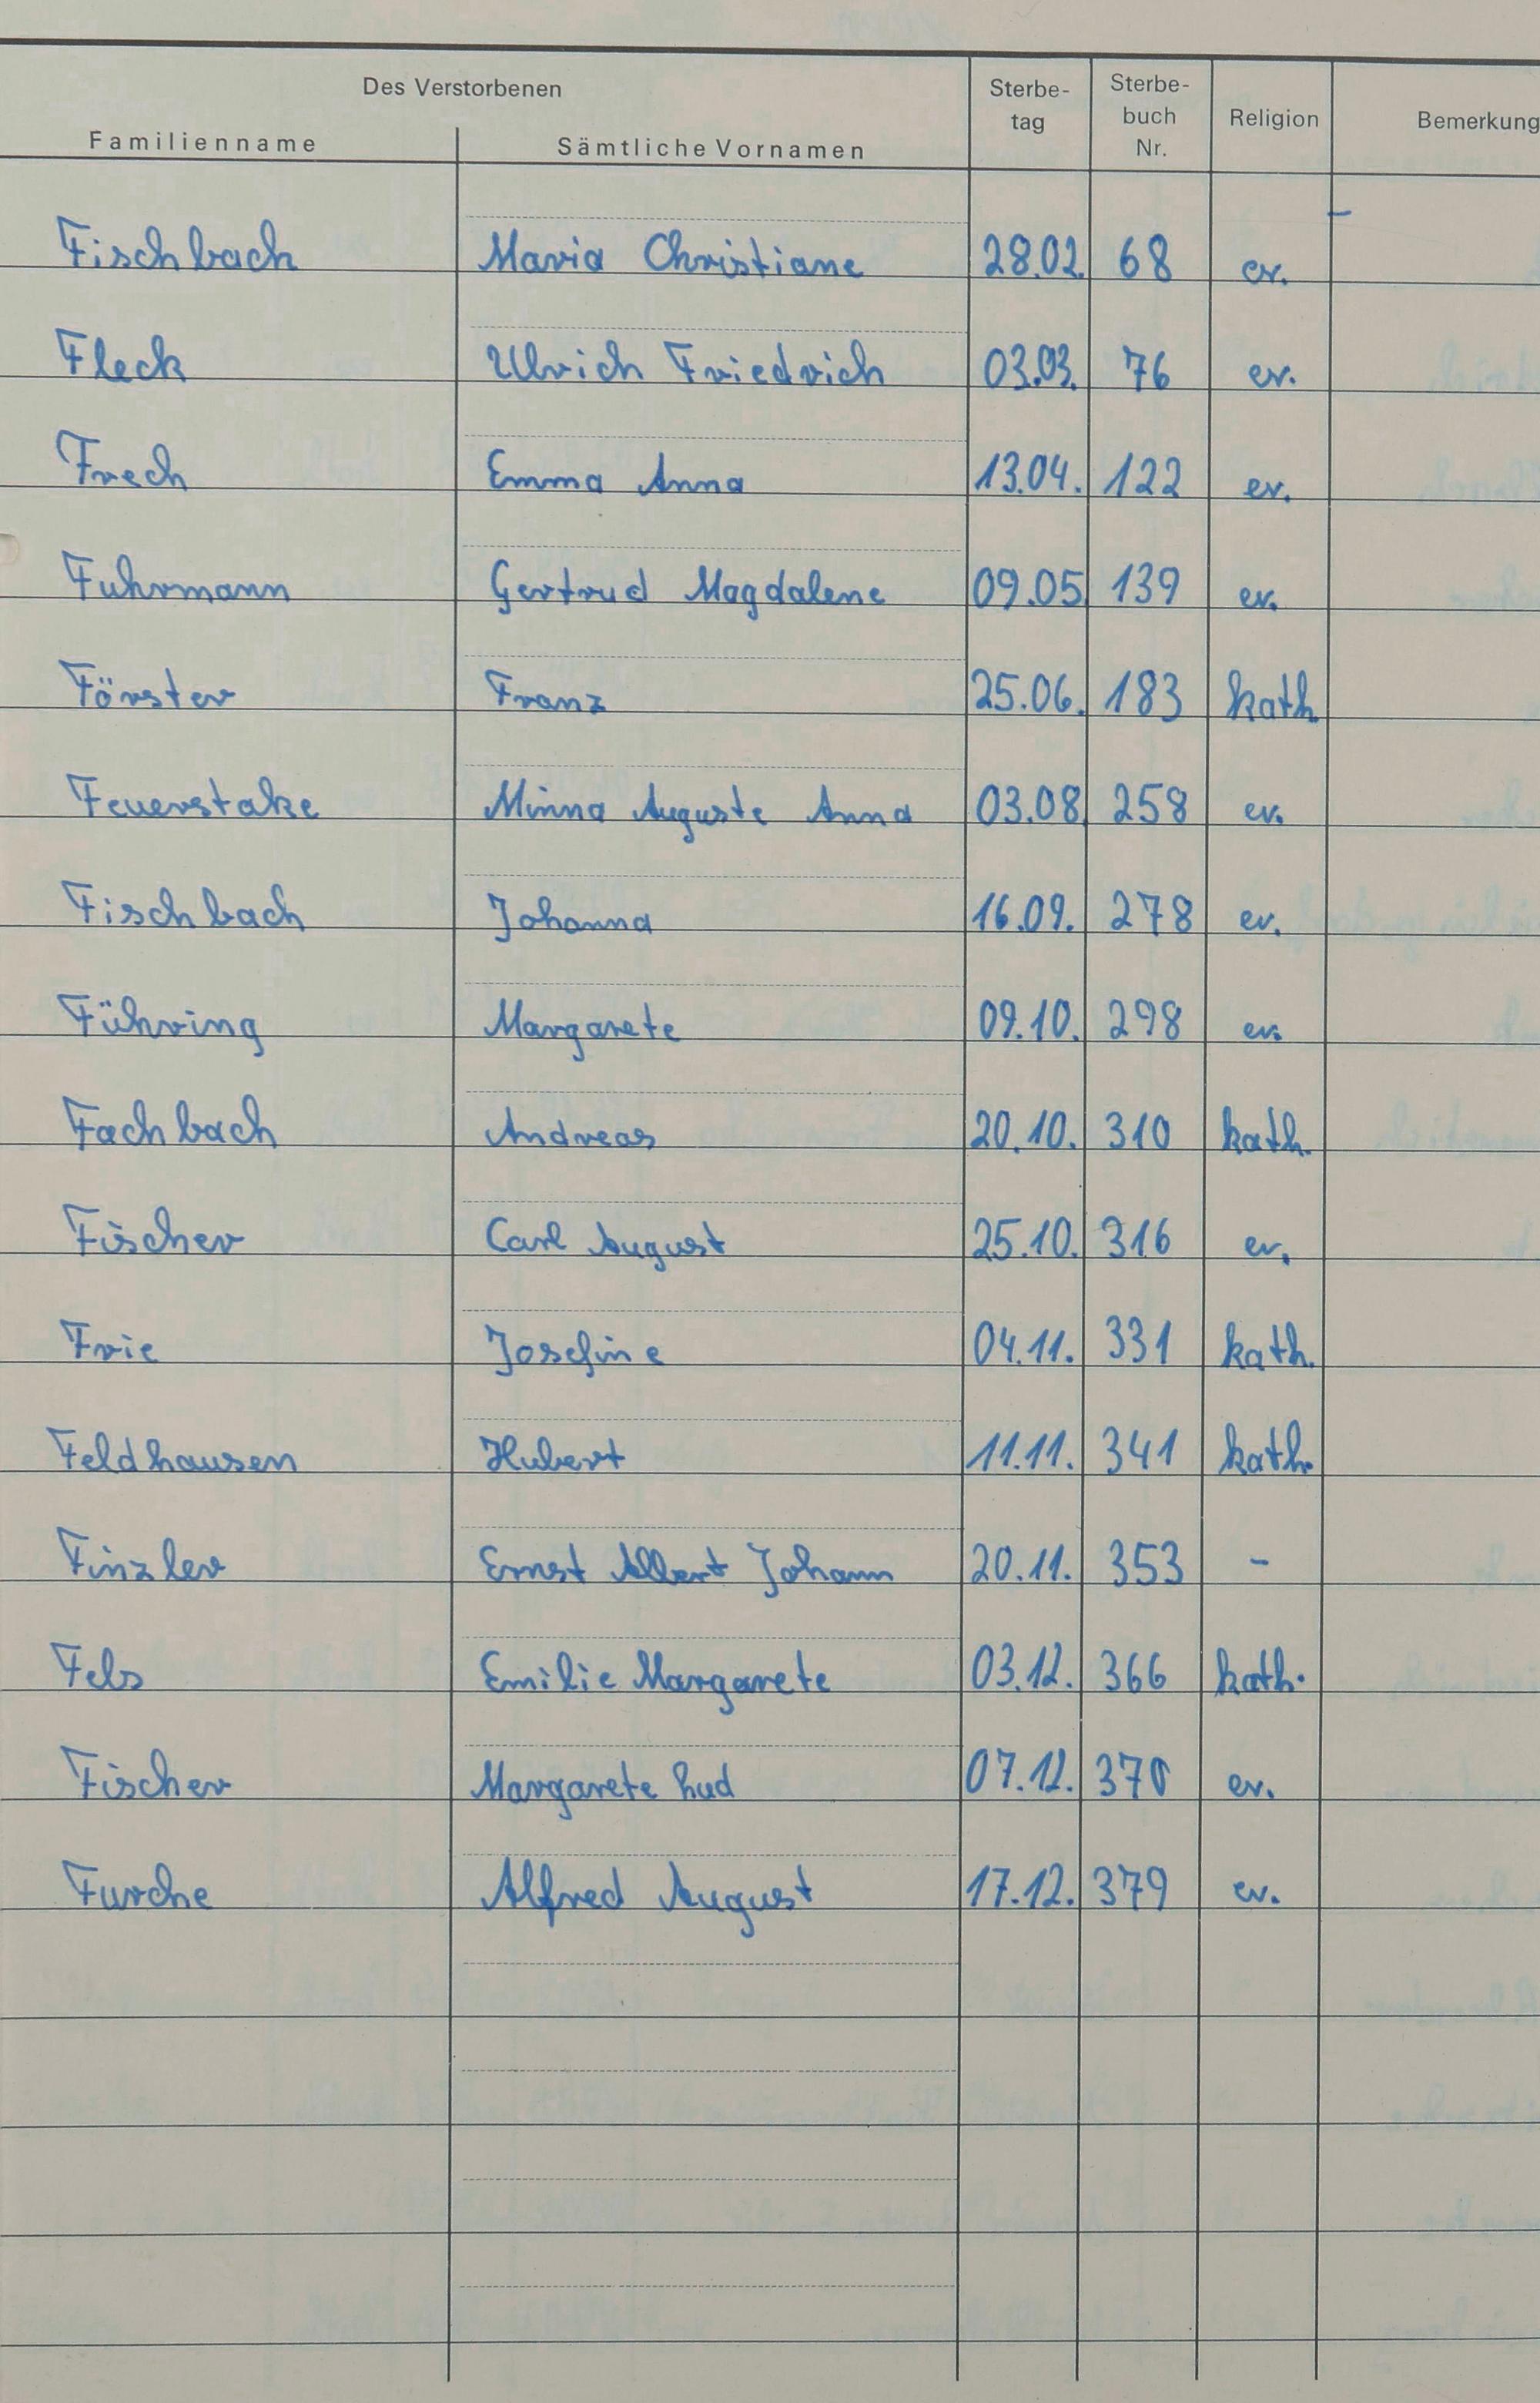 Des Verstorbenen
Familienname Sämtliche Vornamen Sterbe-tag Sterbe-buch Nr. Religion Bemerkung
Fischbach Maria Christiane 28.02. 68 ev.
Fleck Ulrich Friedrich 03.03. 76 ev.
Frech Emma Anna 13.04. 122 ev.
Fuhrmann Gertrud Magdalene 09.05 139 ev.
Förster Franz 25.06. 183 kath.
Feuerstake Minna Auguste Anna 03.08. 258 ev.
Fischbach Johanna 16.09. 278 ev.
Führing Margarete 09.10. 298 ev.
Fachbach Andreas 20.10. 310 kath.
Fischer Carl August 25.10. 316 ev.
Frie Josefine 04.11. 331 kath.
Feldhausen Hubert 11.11. 341 kath.
Finzler Ernst Albert Johann 20.11. 353 -
Fels Emilie Margarete 03.12. 366 kath.
Fischer Margarete 07.12. 370 ev.
Furche Alfred August 17.12. 379 ev.